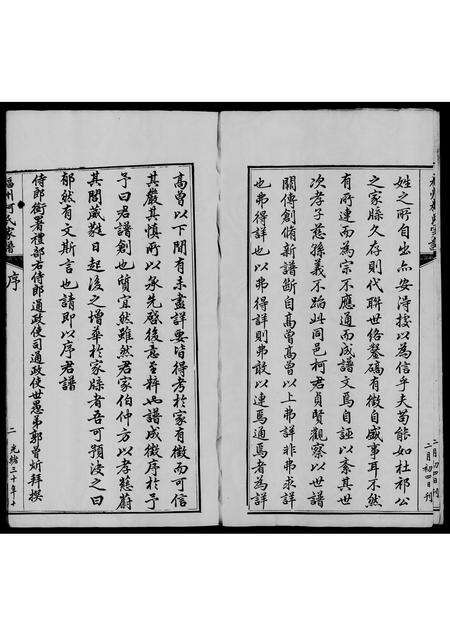 姓之所自出亦安得援以為信乎夫苟能如杜祁公
之家縣久存則代聯世絡鑿碻有徵自盛事耳不然
有所連而為宗不應通而成譜文焉自誣以紊其世
次孝子慈孫義不蹈此同邑柯君貞賢觀察以世譜
闕傳創脩新譜斷自高曾高曾以上弗詳非弗求詳
也弗得詳也弗得詳則弗敢以連焉通焉者為詳
高曾以下間有未盡詳要皆得考於家有徵而可信
其嚴其慎所以承先啓後意至粹也譜成徵序於予
予曰君譜創也質宜然雖然君家伯仲方以孝慈蔚
其閥歲引日起後之增華於家縣者吾可預決之曰
郁然有文斯言也請即以序君譜
侍郎銜署禮部右侍郎通政使司通政使世愚弟郭曾炘拜撰
福州柯氏家譜
序
二
光緒三十年
二月初四日刊